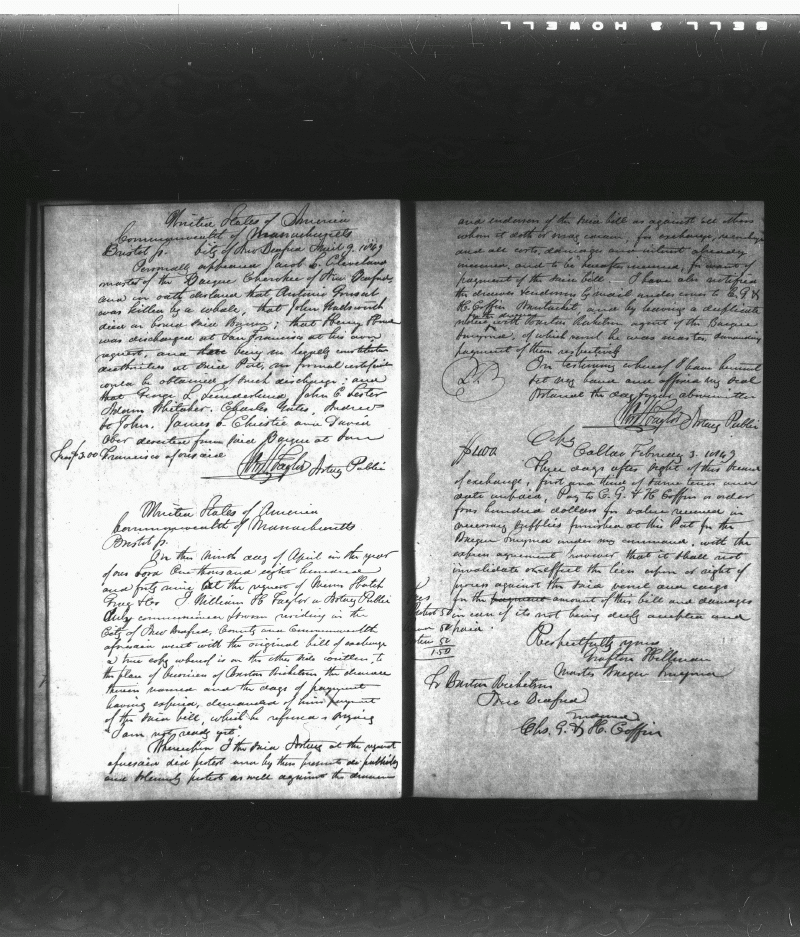 BELL & HOWELL
United States of America
Commonwealth of Massachusetts
Bristol ss. City of New Bedford April 9. 1849
Personally appeared Jacob L. Cleaveland
master of the Barque Cherokee of New Bedford,
and on oath declared that Antonio
was killed by a whale, that John
died on board said Barque; that Henry
was discharged at San Francisco at his own
request, and there being no legally constituted
authorities at said Port, no formal certificate
could be obtained of such discharge: and
that George L. Sunderland, John C. Lester
Adam Whitaker, Charles Yates, Andrew
St John, James S. Christie and David
Ober deserted from said Barque at San
Francisco aforesaid
3.00
Wm H Taylor Notary Public
United States of America
Commonwealth of Massachusetts
Bristol ss.
On this ninth day of April in the year
of our Lord One thousand eight hundred
and forty nine at the request of Messrs Hatch
Gray & Co I William H Taylor a Notary Public
duly commissioned & sworn residing in the
City of New Bedford, County and Commonwealth
aforesaid went with the original bill of exchange
a true copy whereof is on the other side written, to
the place of business of Barton Ricketson the drawee
therein named and the days of payment
having expired, demanded of him payment
of the said bill, which he refused, saying
"I am not ready yet".
Wherefore I the said Notary at the request
aforesaid did protest and by these presents do publickly
and solemnly protest as well against the drawers
and endorsers of the said bill as against all others
whom it doth or may concern, for exchange,
and all costs, damages and interest already
incurred, and to be hereafter incurred, for want of
payment of the said bill. I have also notified
the drawer & endorsers by mail under cover to C. G. &
H. Coffin Nantucket and by leaving a duplicate
notice for the drawer with Barton Ricketson, agent of the Barque
Smyrna, of which vessel he was master, demanding
payment of them respectively
In testimony whereof I have hereunto
set my hand and affixed my seal
Notarial the day & year above written
Wm H Taylor Notary Public
Copy
$400 Callao February 3. 1849
Three days after sight of this
of exchange, first and third of same tenor and
date unpaid, Pay to C. G. & H Coffin or order
four hundred dollars for value received in
necessary supplies furnished at this Port for the
Barque Smyrna under my command, with the
express agreement however that it shall not
invalidate or affect the lien upon or right of
process against the said vessel and cargo
for the payment amount of this bill and damages
in case of its not being duly accepted and
paid.
50
50
50
1.50
Respectfully yours
Grafton Hillman
Master Barque Smyrna
To Barton Ricketson
New Bedford
Endorsed
Chs. G. & H. Coffin